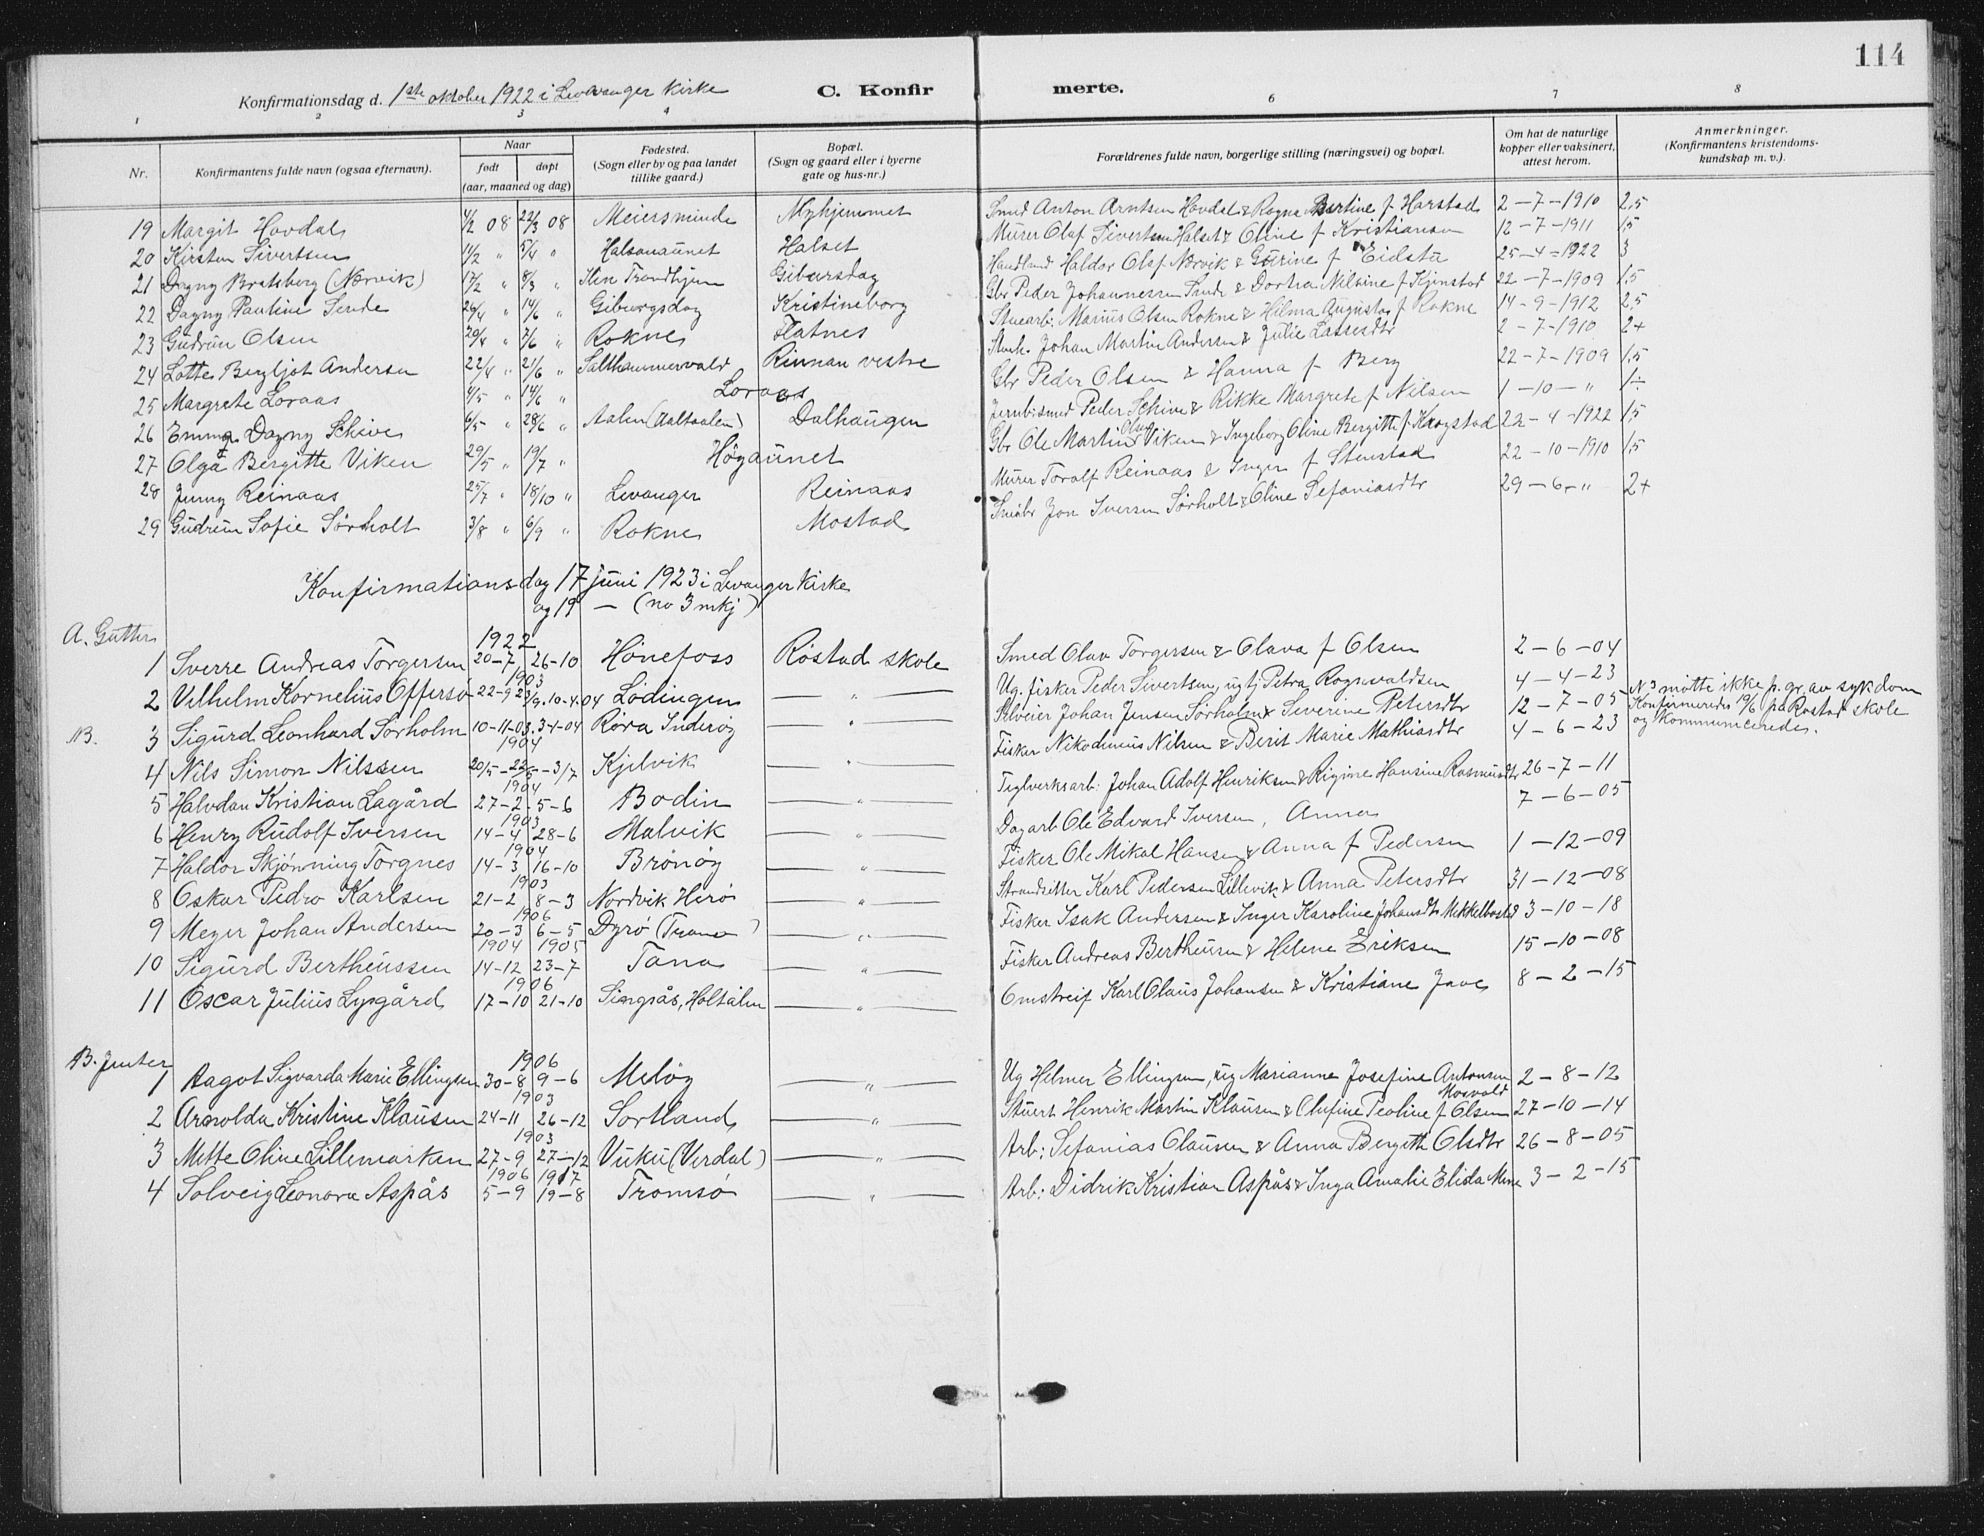 114
Konfirmationsdag d. 1ste oktober 1922 i Levanger kirke C. Konfirmerte.
1 2 3 4 6 7 8
Nr. Konfirmantens fulde navn (ogsaa efternavn). Naar født døpt (aar, maaned og dag) Fødested. (Sogn eller by og paa landet tillike gaard.) Bopæl. (Sogn og gaard eller i byerne gate og hus-nr.) Forældrenes fulde navn, borgerlige stilling (næringsvei) og bopæl. Om hat de naturlige kopper eller vaksinert, attest herom. Anmerkninger. (Konfirmantens kristendomskundskap m. v.).
19 Margit Hovdal 4/2 08 22/3 08 Meiersminde Myhjemmet Smed Anton Arntsen Hovdal & Ragna Bertine f Harstad 2-7-1910 2,5
20 Kirsten Sivertsen 11/2 " 5/4 " Halsanaunet Halset Murer Olaf Sivertsen Halset & Oline f Kristiansen 12-7-1911 1,5
21 Dagny Bratsberg (Nærvik) 17/2 " 8/3 " Ilen Trondhjem Gibursdag Handlend Haldor Olaf Nærvik & Gurine f Eidstu 25-4-1922 3
22 Dagny Pauline Sende 26/4 " 14/6 " Giburgsdag Kristineborg Gbr Peder Johannessen Sande & Dortea Nilsine f Kjenstad 22-7-1909 1,5
23 Gudrun Olsen 20/4 " 7/6 " Rokne Flatnes Stuearb. Marius Olsen Rokne & Hilma Augusta f Rokne 14-9-1912 2,5
24 Lotte Bergljot Andersen 22/4 " 21/6 " Salthammervald Rinnan vestre Johan Martin Andersen & Julie Lassesdtr 2-7-1910 2+
25 Margrete Loraas 4/5 " 14/6 " Loraas Gbr Peder Olsen & Hanna f Berg 22-7-1909 1,5
26 Emma Dagny Schive 6/5 " 28/6 " Aalen (Haltdalen) Dalhaugen Jernb:smed Peder Schive & Rikke Margrete f Nilsen 1-10-" 1÷
27 Olga Bergitte Viken 29/5 " 19/7 " Høgaunet Gbr Ole Martin Olsen Viken & Ingeborg Oline Bergitte f Krogstad 22-4-1922 1,5
28 Jenny Reinaas 25/7 " 18/10 " Levanger Reinaas Murer Toralf Reinaas & Inger f Stenstad 22-10-1910 1,5
29 Gudrun Sofie Sørholt 3/8 " 6/9 " Rokne Mostad Småbr Jon Iversen Sørholt & Oline Sefaniasdtr 29-6-" 2+
Konfirmationsdag 17 juni 1923 i Levanger kirke
og 19 — (no 3 mkj)
A. Gutter
1 Sverre Andreas Torgersen 1922 20-7 26-10 Hønefoss Røstad skole Smed Olav Torgersen & Olava f Olsen 2-6-04
2 Vilhelm Kornelius Offersø 1903 22-9 23/9. 10-4-04 Lødingen — " — Ug. fisker Peder Sivertsen, ugtj Petra Rognvaldsen 4-4-23
NB. 3 Sigurd Leonhard Sørholm 10-11-03 3-4-04 Røra Inderøy — " — Selveier Johan Jensen Sørholm & Severine Petersdtr 12-7-05 N 3 møtte ikke p. gr. av sykdom Konfirmeredes 19/6 på Røstad skole og kommuniceredes.
4 Nils Simon Nilssen 1904 20/5 – 22/5 – 3/7 Kjelvik — " — Fisker Nikodemus Nilsen & Berit Marie Mathiasdtr 4-6-23
5 Halvdan Kristian Lagård 1904 27-2 5-6 Bodin — " — Teglverksarb: Johan Adolf Henriksen & Rigine Hansine Rasmusdtr 26-7-11
6 Henry Rudolf Iversen 1903 14-4 28-6 Malvik — " — Dagarb Ole Edvard Iversen, Anna 7-6-05
7 Haldor Skjønning Torgnes 1904 14-3 16-10 Brønøy — " — Fisker Ole Mikal Hansen & Anna f Pedersen 1-12-09
8 Oskar Pedro Karlsen 1903 21-2 8-3 Nordvik Herø — " — Strandsitter Karl Pedersen Lillevik & Anna Petersdtr 31-12-08
9 Meyer Johan Andersen 1906 20-3 6-5 Dyrø (Tranø) — " — Fisker Isak Andersen & Inger Karoline Johansdtr Mekkelbostad 3-10-18
10 Sigurd Bertheussen 1904 14-12 1905 23-7 Tana — " — Fisker Andreas Bertheusen & Helene Eriksen 15-10-08
11 Oscar Julius Lysgård 1906 17-10 21-10 Singsås, Holtålen — " — Omstreif Karl Olaus Johansen & Kristiane 8-2-15
B. Jenter
1 Aagot Sigvarda Marie Ellingsen 1906 30-8 9-6 Meløy — " — Ug Helmer Ellingsen, ug Marianne Josefine Antonsen 2-8-12
2 Arnolda Kristine Klausen 1903 24-11 26-12 Sortland — " — Stuert Henrik Martin Klausen & Olufine Peoline f Olsen Mosvold 27-10-14
3 Mette Oline Lillemarken 1903 27-9 27-12 Vuku (Verdal) — " — Arb: Sefanias Olausen & Anna Bergitte Olsdtr 26-8-05
4 Solveig Leonora Aspås 1906 5-9 1917 19-8 Tromsø — " — Arb: Didrik Kristian Aspås & Inga Amalie Elida 3-2-15